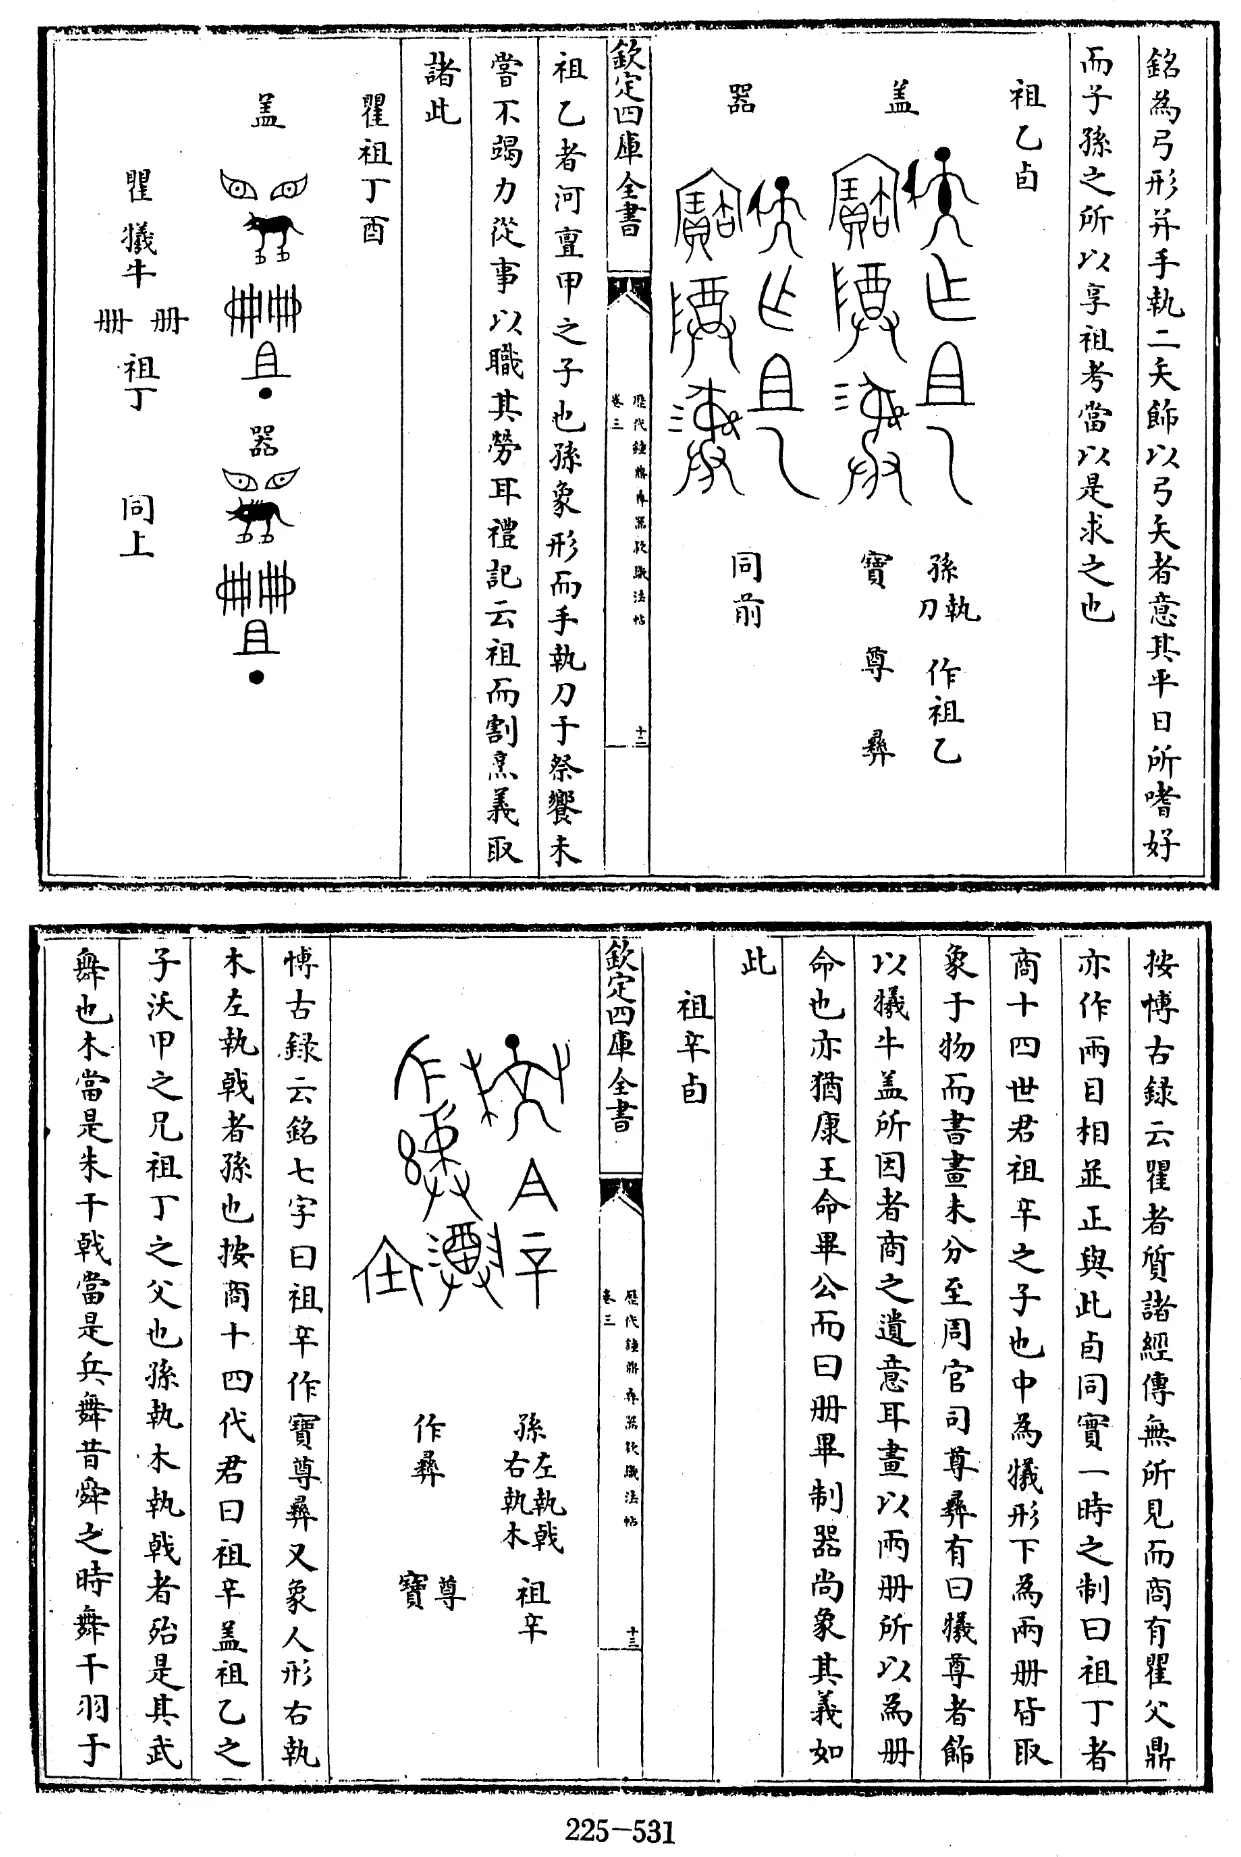 銘為弓形并手執二矢飾以弓矢者意其平日所嗜好
而子孫之所以享祖考當以是求之也
祖乙卣
盖
孫執刀 作祖乙
寶 尊 彝
器
同前
欽定四庫全書
歷代鐘鼎彝器款識法帖
卷三
十二
祖乙者河亶甲之子也孫象形而手執刀于祭饗未
嘗不竭力從事以職其勞耳禮記云祖而割烹義取
諸此
瞿祖丁卣
盖
器
瞿 犧牛 冊 冊 祖丁
同上
按博古録云瞿者質諸經傳無所見而商有瞿父鼎
亦作兩目相並正與此卣同實一時之制曰祖丁者
商十四世君祖辛之子也中為犧形下為兩册皆取
象于物而書畫未分至周官司尊彝有曰犧尊者飾
以犧牛盖所因者商之遺意耳畫以兩册所以為册
命也亦猶康王命畢公而曰册畢制器尚象其義如
此
祖辛卣
孫 左執戟 右執木 祖辛
尊
作彝 寶
欽定四庫全書
歷代鐘鼎彝器款識法帖
卷三
十三
博古録云銘七字曰祖辛作寶尊彝又象人形右執
木左執戟者孫也按商十四代君曰祖辛盖祖乙之
子沃甲之兄祖丁之父也孫執木執戟者殆是其武
舞也木當是朱干戟當是兵舞昔舜之時舞干羽于
225-531